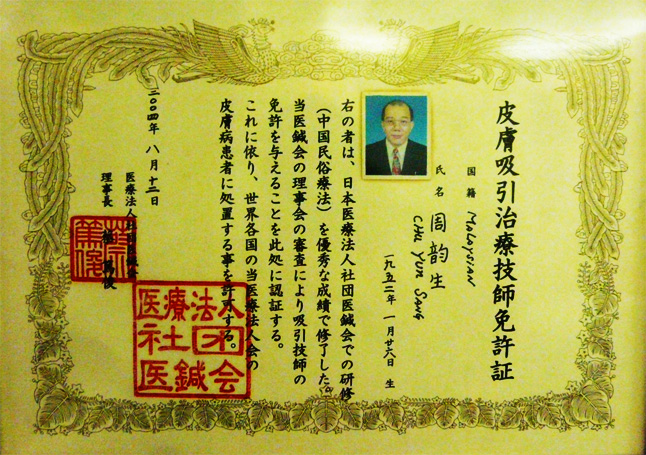 皮膚吸引治療技師免許証
国籍 Malaysian
氏名 周韵生
CHU YUN SANG
一九五二年 一月廿六日 生
右の者は、日本医療法人社団医鍼会での研修
(中国民俗療法)を優秀な成績で修了した。
当医鍼会の理事会の審査により吸引技師の
免許を与えることを此処に認証する。
これに依り、世界各国の当医療法人会の
皮膚病患者に処置する事を許可する。
二〇〇四年 八月十二日
医療法人社団
理事長
医療法人
社団
医鍼会